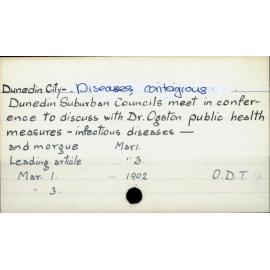 Dunedin City - Diseases, contagious
Dunedin Suburban Councils meet in confer-
ence to discuss with Dr. Ogston public health
measures - infectious diseases —
and morgue Mar 1.
Leading article " 3.
Mar. 1. 1902 O.D.T.
" 3.